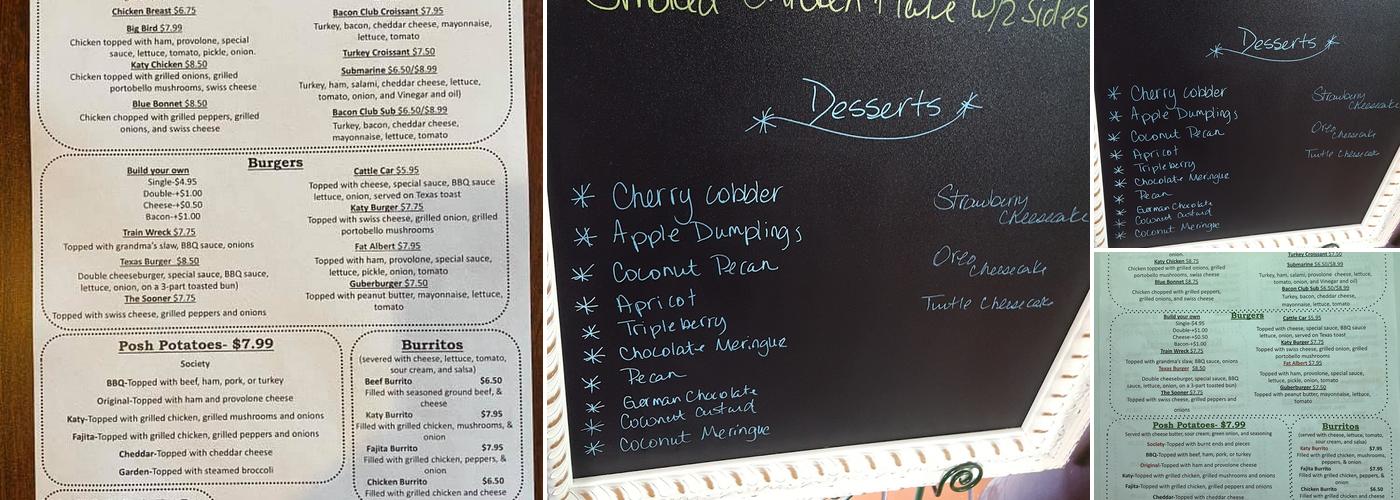 Chicken Breast $6.75
Big Bird $7.99
Chicken topped with ham, provolone, special
sauce, lettuce, tomato, pickle, onion.
Katy Chicken $8.50
Chicken topped with grilled onions, grilled
portobello mushrooms, swiss cheese
Blue Bonnet $8.50
Chicken chopped with grilled peppers, grilled
onions, and swiss cheese
Bacon Club Croissant $7.95
Turkey, bacon, cheddar cheese, mayonnaise,
lettuce, tomato
Turkey Croissant $7.50
Submarine $6.50/$8.99
Turkey, ham, salami, cheddar cheese, lettuce,
tomato, onion, and Vinegar and oil)
Bacon Club Sub $6.50/$8.99
Turkey, bacon, cheddar cheese,
mayonnaise, lettuce, tomato
Burgers
Build your own
Single-$4.95
Double-+$1.00
Cheese-+$0.50
Bacon-+$1.00
Train Wreck $7.75
Topped with grandma's slaw, BBQ sauce, onions
Texas Burger $8.50
Double cheeseburger, special sauce, BBQ sauce,
lettuce, onion, on a 3-part toasted bun)
The Sooner $7.75
Topped with swiss cheese, grilled peppers and onions
Cattle Car $5.95
Topped with cheese, special sauce, BBQ sauce
lettuce, onion, served on Texas toast
Katy Burger $7.75
Topped with swiss cheese, grilled onion, grilled
portobello mushrooms
Fat Albert $7.95
Topped with ham, provolone, special sauce,
lettuce, pickle, onion, tomato
Guberburger $7.50
Topped with peanut butter, mayonnaise, lettuce,
tomato
Posh Potatoes- $7.99
Society
BBQ-Topped with beef, ham, pork, or turkey
Original-Topped with ham and provolone cheese
Katy-Topped with grilled chicken, grilled mushrooms and onions
Fajita-Topped with grilled chicken, grilled peppers and onions
Cheddar-Topped with cheddar cheese
Garden-Topped with steamed broccoli
Burritos
(severed with cheese, lettuce, tomato,
sour cream, and salsa)
Beef Burrito $6.50
Filled with seasoned ground beef, &
cheese
Katy Burrito $7.95
Filled with grilled chicken, mushrooms, &
onion
Fajita Burrito $7.95
Filled with grilled chicken, peppers, &
onion
Chicken Burrito $6.50
Filled with grilled chicken and cheese
Smoked Chicken Plate w/2 sides
Desserts
Cherry Cobbler
Apple Dumplings
Coconut Pecan
Apricot
Tripleberry
Chocolate Meringue
Pecan
German Chocolate
Coconut Custard
Coconut Meringue
Strawberry
Cheesecake
Oreo
Cheesecake
Turtle Cheesecake
Desserts
Cherry Cobbler
Apple Dumplings
Coconut Pecan
Apricot
Tripleberry
Chocolate Meringue
Pecan
German Chocolate
Coconut Custard
Coconut Meringue
Strawberry
Cheesecake
Oreo
Cheesecake
Turtle Cheesecake
onion.
Katy Chicken $8.75
Chicken topped with grilled onions, grilled
portobello mushrooms, swiss cheese
Blue Bonnet $8.75
Chicken chopped with grilled peppers,
grilled onions, and swiss cheese
Turkey Croissant $7.50
Submarine $6.50/$8.99
Turkey, ham, salami, provolone cheese, lettuce,
tomato, onion, and Vinegar and oil)
Bacon Club Sub $6.50/$8.99
Turkey, bacon, cheddar cheese,
mayonnaise, lettuce, tomato
Burgers
Build your own
Single-$4.95
Double-+$1.00
Cheese-+$0.50
Bacon-+$1.00
Train Wreck $7.75
Topped with grandma's slaw, BBQ sauce, onions
Texas Burger $8.50
Double cheeseburger, special sauce, BBQ
sauce, lettuce, onion, on a 3-part toasted bun)
The Sooner $7.75
Topped with swiss cheese, grilled peppers and
onions
Cattle Car $5.95
Topped with cheese, special sauce, BBQ sauce
lettuce, onion, served on Texas toast
Katy Burger $7.75
Topped with swiss cheese, grilled onion, grilled
portobello mushrooms
Fat Albert $7.95
Topped with ham, provolone, special sauce,
lettuce, pickle, onion, tomato
Guberburger $7.50
Topped with peanut butter, mayonnaise, lettuce,
tomato
Posh Potatoes- $7.99
Served with cheese, butter, sour cream, green onion, and seasoning
Society-Topped with burnt ends and pieces
BBQ-Topped with beef, ham, pork, or turkey
Original-Topped with ham and provolone cheese
Katy-Topped with grilled chicken, grilled mushrooms and onions
Fajita-Topped with grilled chicken, grilled peppers and onions
Cheddar-Topped with cheddar cheese
Burritos
(served with cheese, lettuce, tomato,
sour cream, and salsa)
Katy Burrito $7.95
Filled with grilled chicken, mushrooms,
peppers, & onion
Fajita Burrito $7.95
Filled with grilled chicken, peppers, &
onion
Chicken Burrito
Filled with grilled chicken and cheese